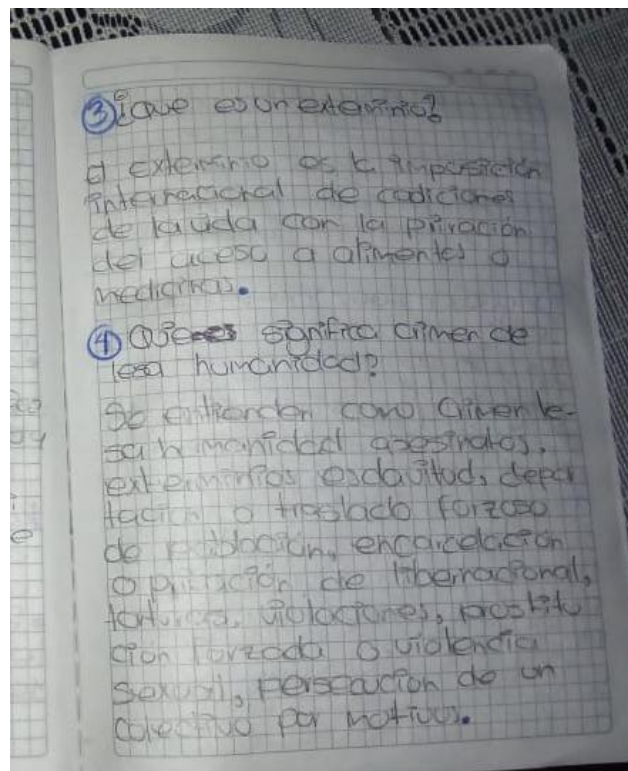 ③ ¿que es un exterminio?
el exterminio es la imposición
internacional de codiciones
de la vida con la privación
del aceso a alimentos o
medicinas.
④ Que es significa crimen de
lesa humanidad?
Se entienden como crimen le-
sa humanidad asesinatos,
exterminios esclavitud, depor
tación o traslado forzoso
de población, encarcelación
o privación de libernacional,
torturas, violaciones, prostitu
cion forzada o violencia
sexual, persecución de un
colectivo por motivos.